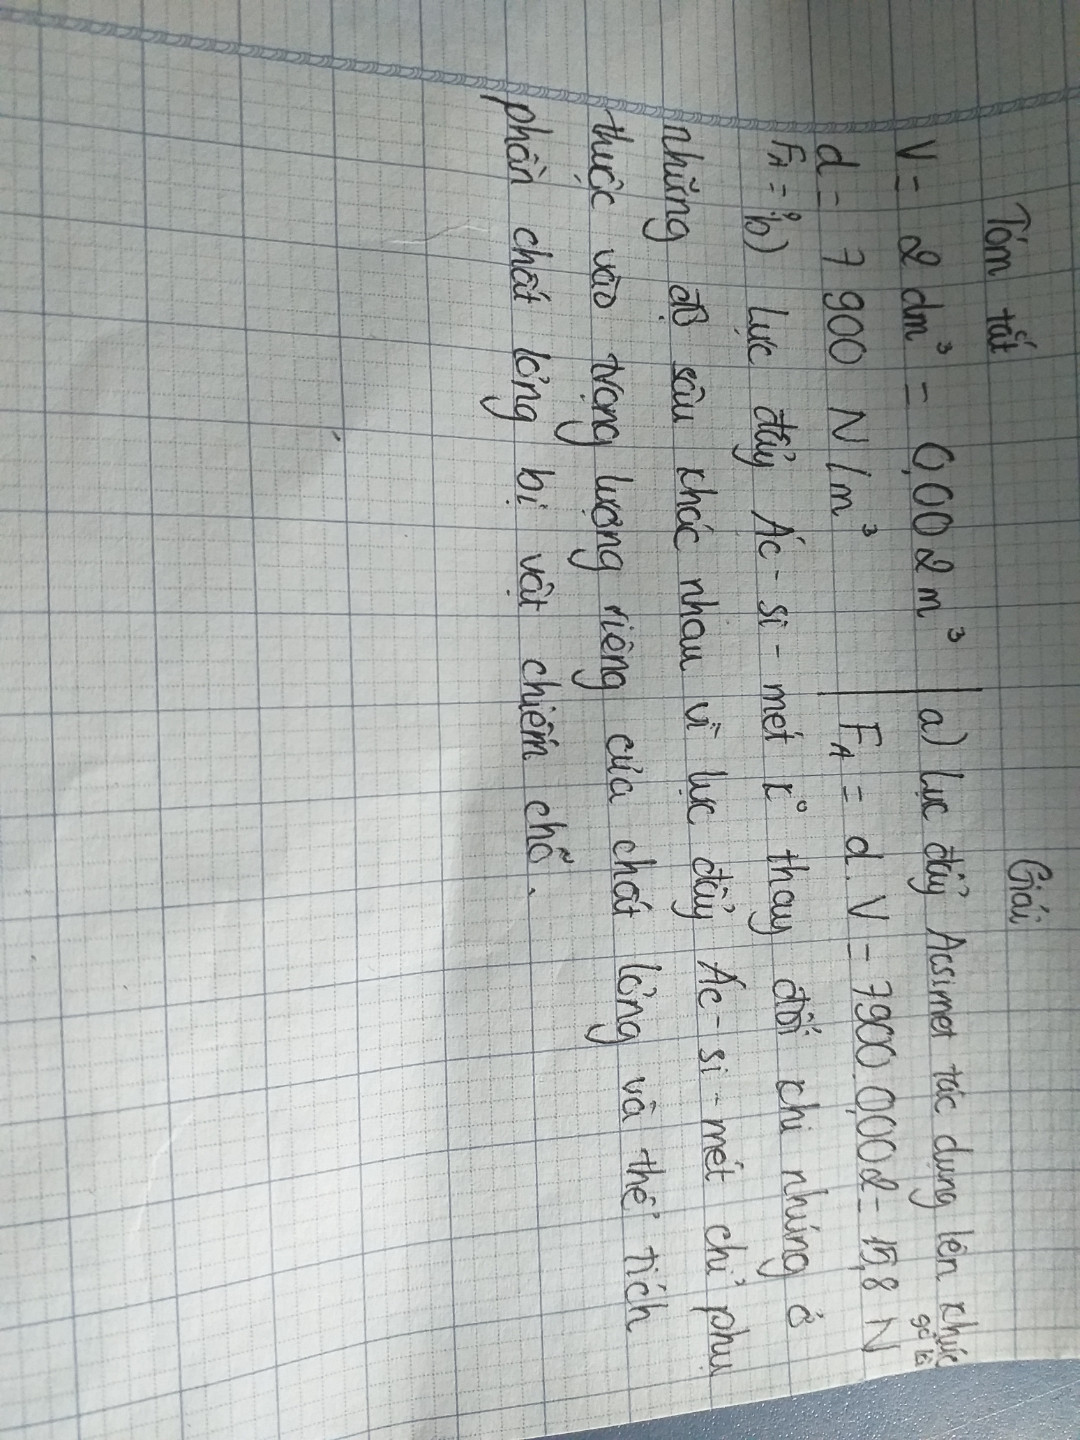 Tóm tắt
Giải
V = 2 dm³ = 0,002 m³
a) Lực đẩy Acsimet tác dụng lên khúc
gỗ là
d = 7900 N/m³
F_A = d.V = 7900.0,002 = 15,8 N
F_A = ?
b) Lực đẩy Ác-si-mét k° thay đổi khi nhúng ở
những độ sâu khác nhau vì lực đẩy Ác-si-mét chỉ phụ
thuộc vào trọng lượng riêng của chất lỏng và thể tích
phần chất lỏng bị vật chiếm chỗ.